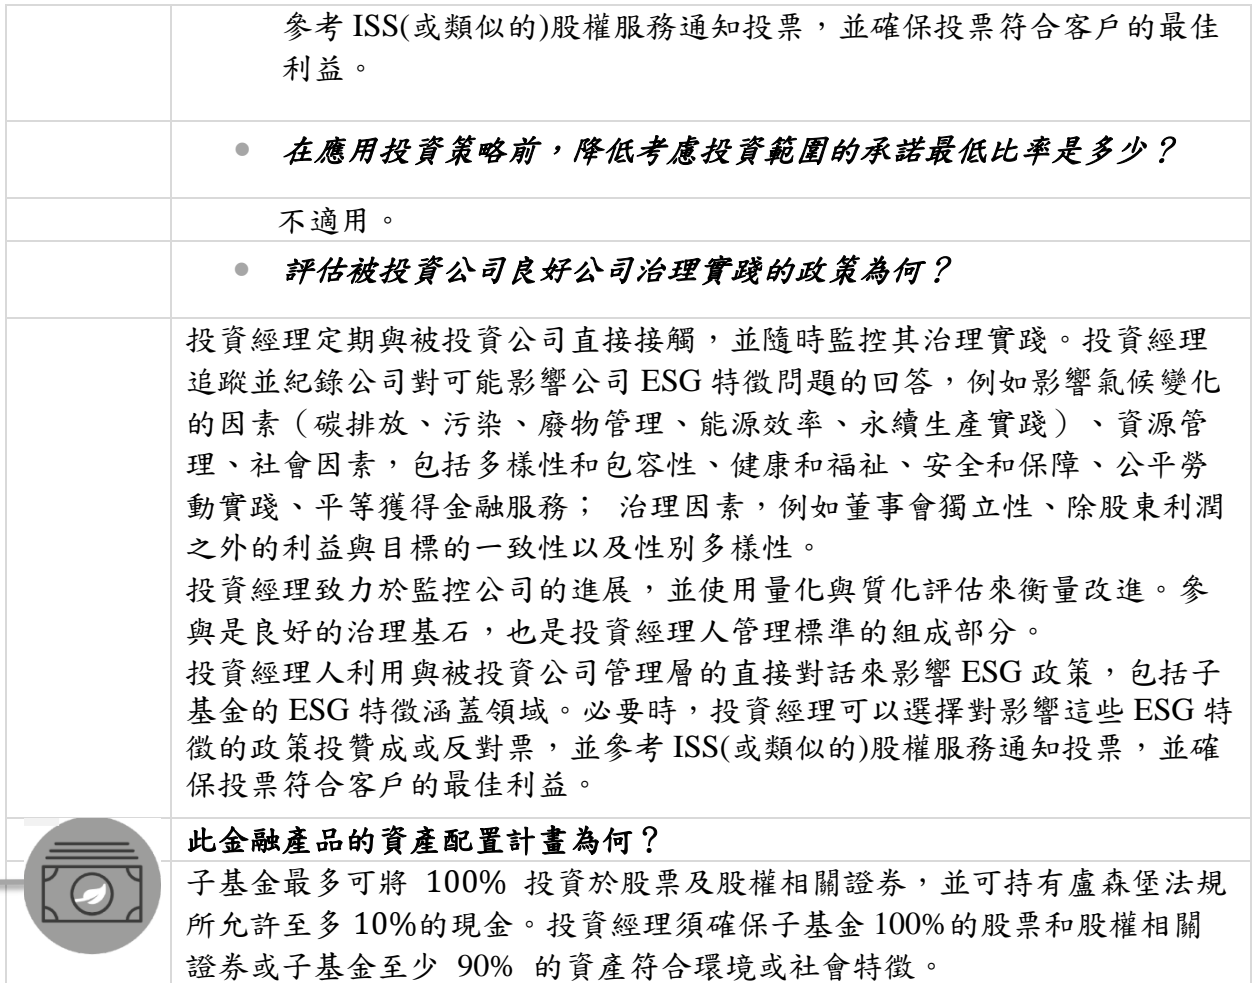 參考 ISS(或類似的)股權服務通知投票，並確保投票符合客戶的最佳
利益。
• 在應用投資策略前，降低考慮投資範圍的承諾最低比率是多少？
不適用。
• 評估被投資公司良好公司治理實踐的政策為何？
投資經理定期與被投資公司直接接觸，並隨時監控其治理實踐。投資經理
追蹤並紀錄公司對可能影響公司 ESG 特徵問題的回答，例如影響氣候變化
的因素（碳排放、污染、廢物管理、能源效率、永續生產實踐）、資源管
理、社會因素，包括多樣性和包容性、健康和福祉、安全和保障、公平勞
動實踐、平等獲得金融服務； 治理因素，例如董事會獨立性、除股東利潤
之外的利益與目標的一致性以及性別多樣性。
投資經理致力於監控公司的進展，並使用量化與質化評估來衡量改進。參
與是良好的治理基石，也是投資經理人管理標準的組成部分。
投資經理人利用與被投資公司管理層的直接對話來影響 ESG 政策，包括子
基金的 ESG 特徵涵蓋領域。必要時，投資經理可以選擇對影響這些 ESG 特
徵的政策投贊成或反對票，並參考 ISS(或類似的)股權服務通知投票，並確
保投票符合客戶的最佳利益。
此金融產品的資產配置計畫為何？
子基金最多可將 100% 投資於股票及股權相關證券，並可持有盧森堡法規
所允許至多 10%的現金。投資經理須確保子基金 100%的股票和股權相關
證券或子基金至少 90% 的資產符合環境或社會特徵。